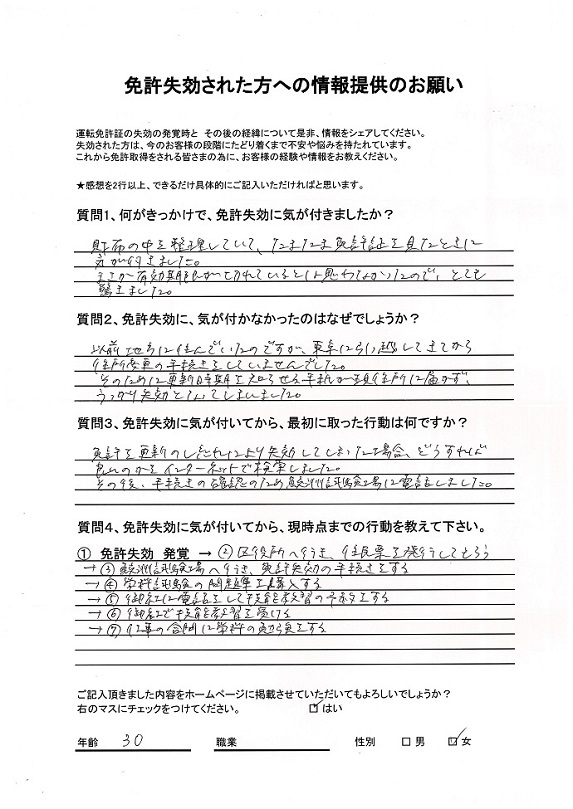 免許失効された方への情報提供のお願い
運転免許証の失効の発覚時と その後の経緯について是非、情報をシェアしてください。
失効された方は、今のお客様の段階にたどり着くまで不安や悩みを持たれています。
これから免許取得をされる皆さまの為に、お客様の経験や情報をお教えください。
★感想を2行以上、できるだけ具体的にご記入いただければと思います。
質問1、何がきっかけで、免許失効に気が付きましたか？
財布の中を整理していて、たまたま免許証を見たときに
気が付きました。
まさか有効期限が切れているとは思わなかったので、とても
驚きました。
質問2、免許失効に、気が付かなかったのはなぜでしょうか？
以前地方に住んでいたのですが、東京に引っ越してきてから
住所変更の手続きをしていませんでした。
そのために更新時期を知らせる手紙が現住所に届かず、
うっかり失効となってしまいました。
質問3、免許失効に気が付いてから、最初に取った行動は何ですか？
免許を更新のし忘れにより失効してしまった場合、どうすれば
良いのかをインターネットで検索しました。
その後、手続きの確認のため鮫洲試験場に電話しました。
質問4、免許失効に気が付いてから、現時点までの行動を教えて下さい。
① 免許失効 発覚 → ② 区役所へ行き、住民票を発行してもらう
→ ③ 鮫洲試験場へ行き、免許失効の手続きをする
→ ④ 学科試験の問題集を購入する
→ ⑤ 御社に電話をして技能教習の予約をする
→ ⑥ 御社で技能教習を受ける
→ ⑦ 仕事の合間に学科の勉強をする
ご記入頂きました内容をホームページに掲載させていただいてもよろしいでしょうか？
右のマスにチェックをつけてください。 ☑ はい
年齢 30 職業 性別 □ 男 ☑ 女